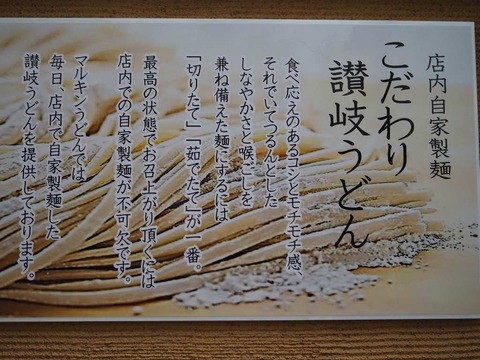 店内自家製麺
こだわり
讃岐うどん
食べ応えのあるコシとモチモチ感、
それでいてつるんとした
しなやかさと喉ごしを
兼ね備えた麺にするには
「切りたて」「茹でたて」が一番。
最高の状態でお召上がり頂くには
店内での自家製麺が不可欠です。
マルキンうどんでは
毎日、店内で自家製麺した
讃岐うどんを提供しております。